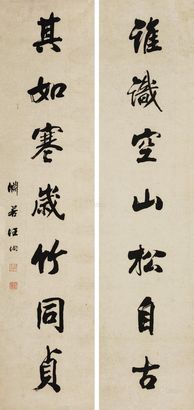 谁識空山松自古
其如寒歲竹同貞
汪洵